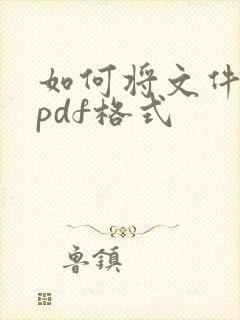 如何将文件
pdf格式
鲁镇